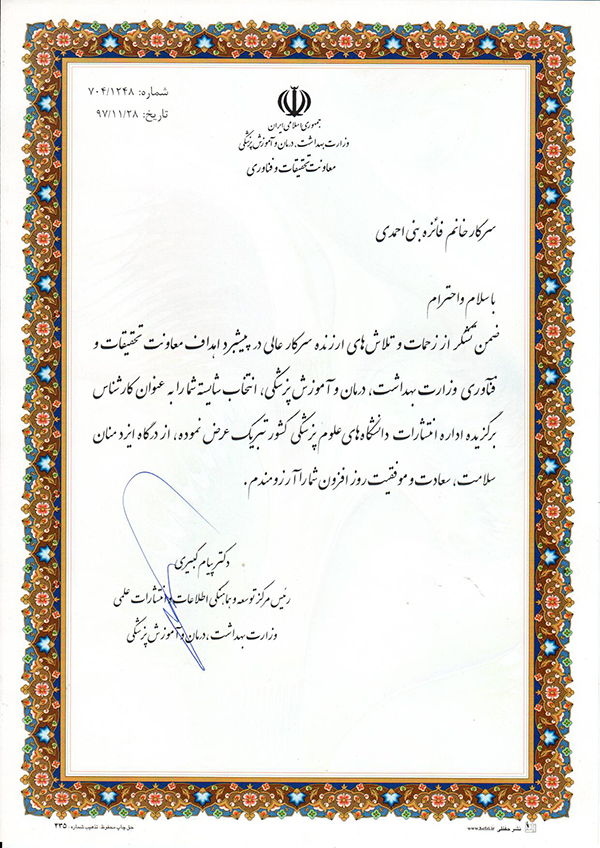 شماره: ۷۰۴/۱۲۴۸
تاریخ: ۹۷/۱۱/۲۸
جمهوری اسلامی ایران
وزارت بهداشت، درمان و آموزش پزشکی
معاونت تحقیقات و فناوری
سرکار خانم فائزه بنی احمدی
با سلام و احترام
ضمن تشکر از زحمات و تلاش های ارزنده سرکار عالی در پیشبرد اهداف معاونت تحقیقات و
فنآوری وزارت بهداشت، درمان و آموزش پزشکی، انتخاب شایسته شما را به عنوان کارشناس
برگزیده اداره انتشارات دانشگاه های علوم پزشکی کشور تبریک عرض نموده، از درگاه ایزد منان
سلامت، سعادت و موفقیت روز افزون شما را آرزومندم.
دکتر پیام کبیری
رئیس مرکز توسعه و هماهنگی اطلاعات و انتشارات علمی
وزارت بهداشت، درمان و آموزش پزشکی
نشر حفظی www.hefzi.ir
حق چاپ محفوظ. تذهیب شماره: ۴۳۵